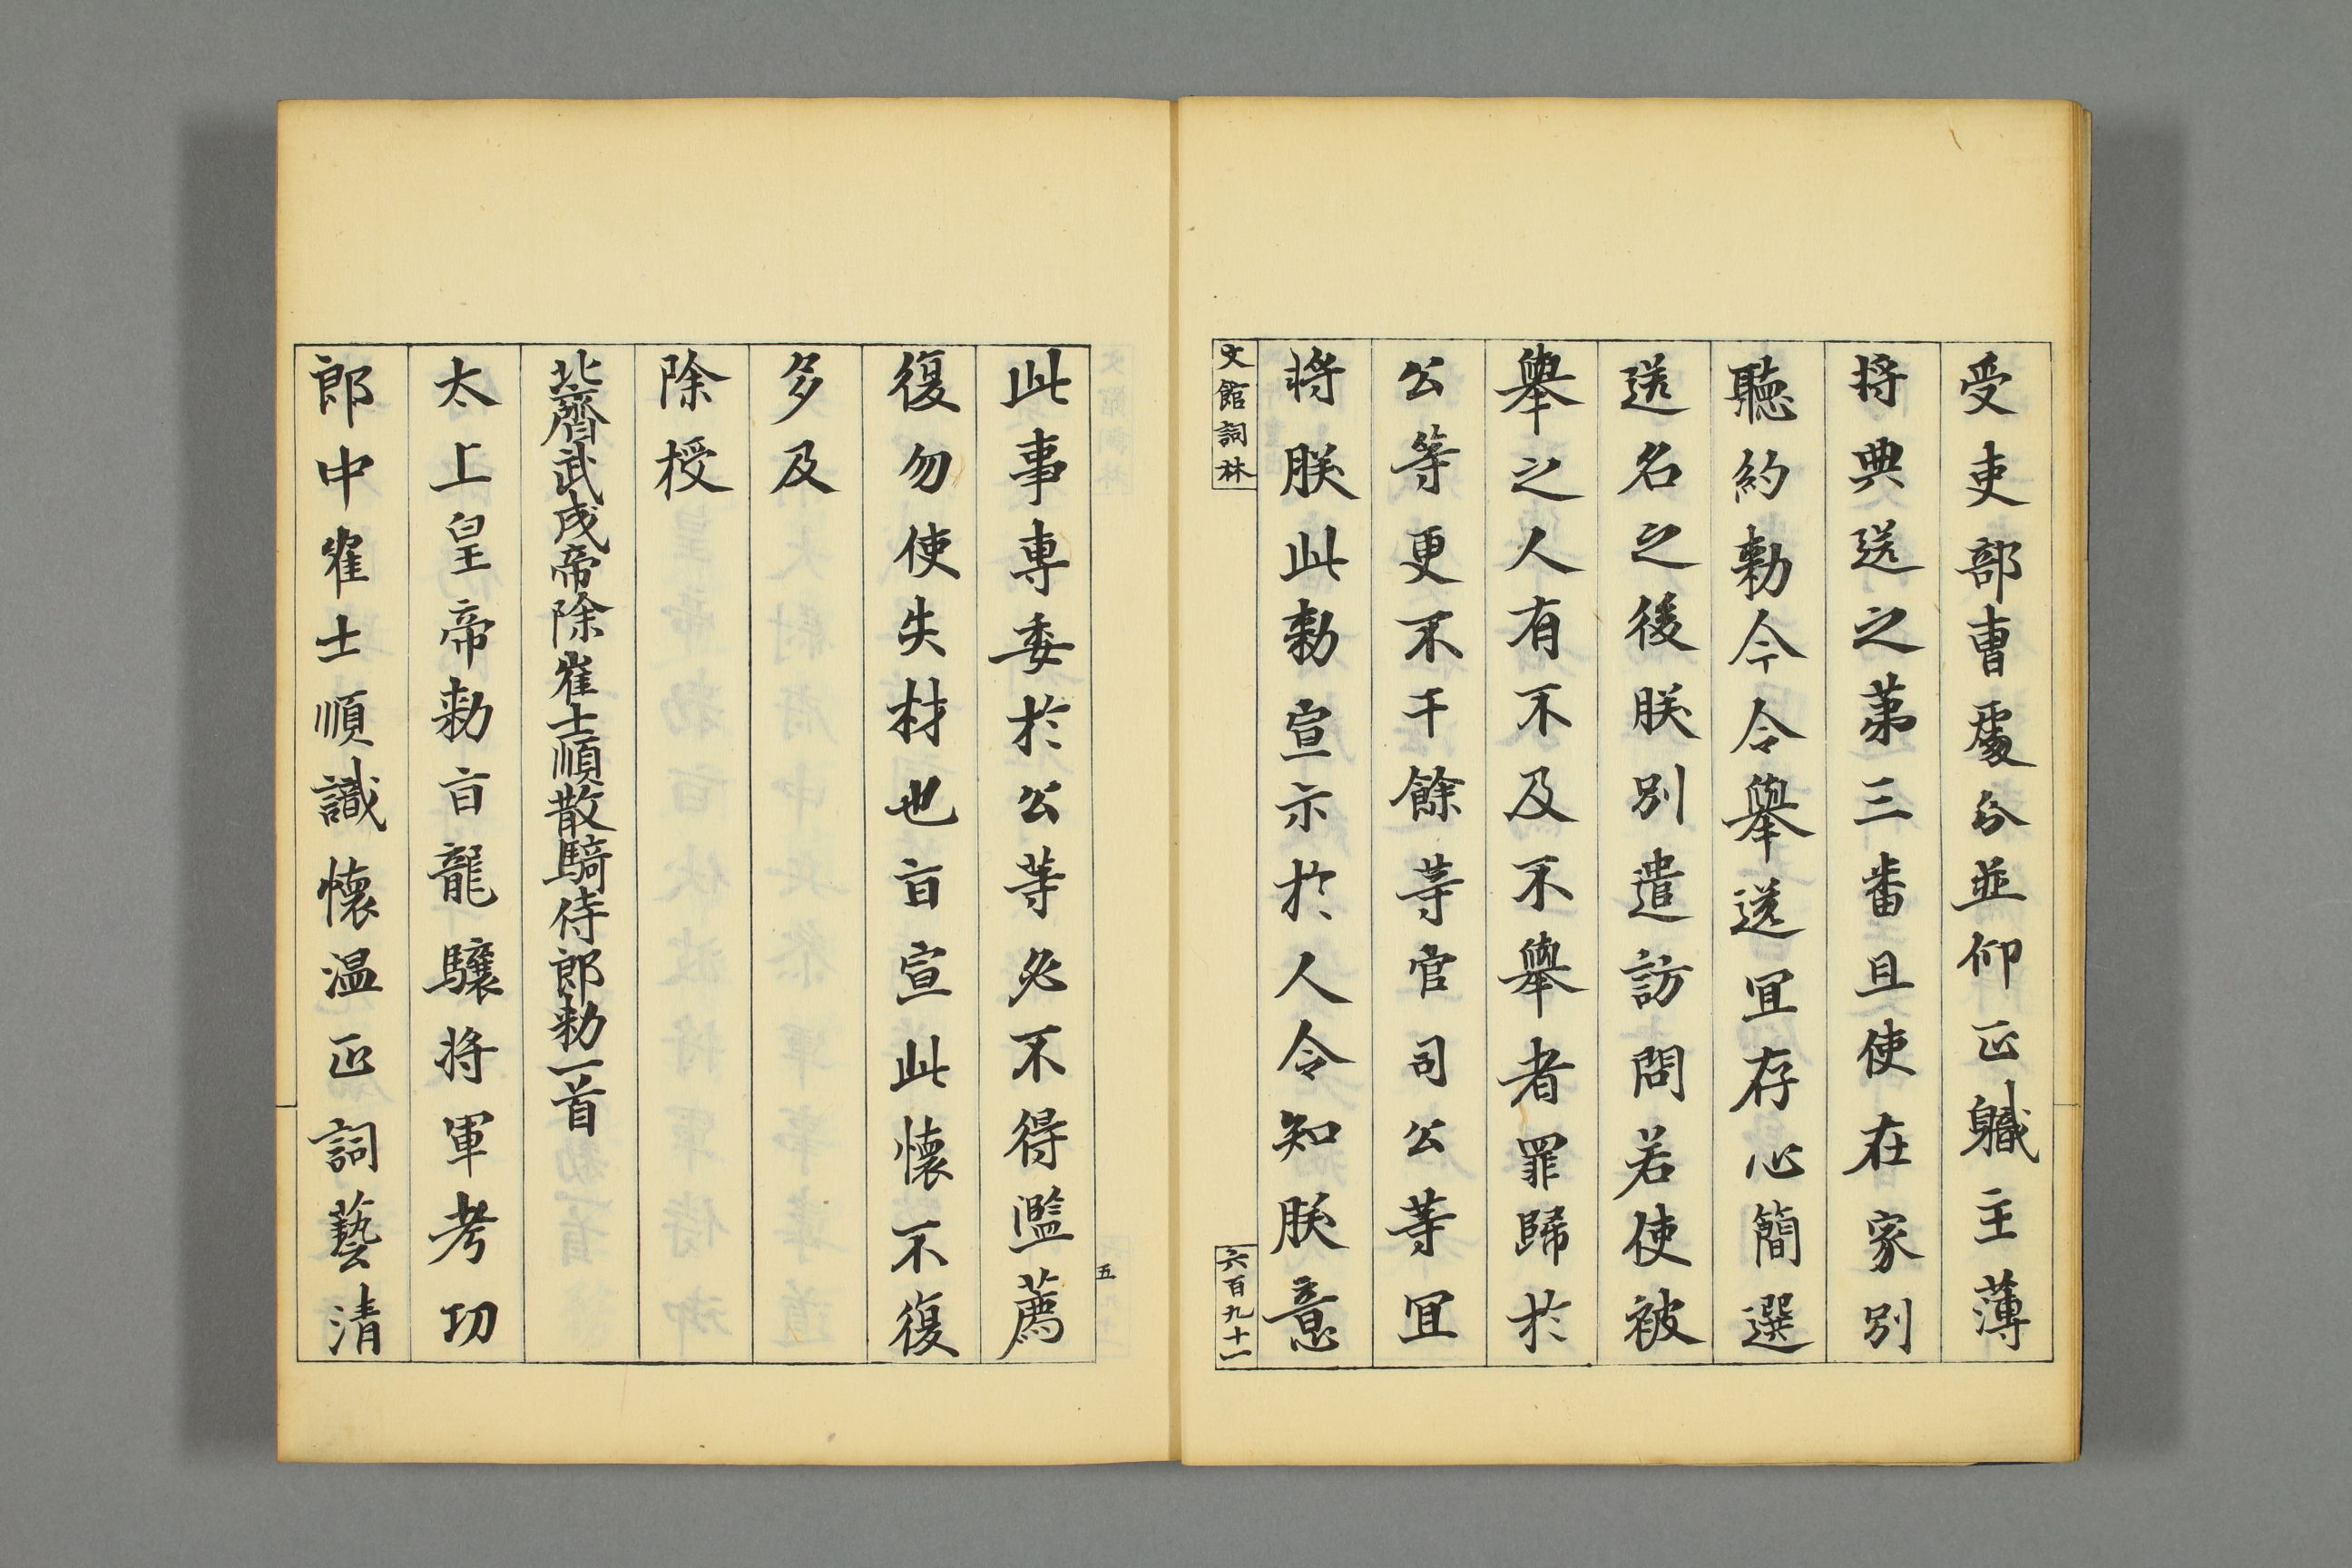 受吏部曺處分並仰正軄主薄
将典送之苐三番且使在家別
聽約勑今令舉送冝存心簡選
送名之後朕別遣訪問若使被
舉之人有不及不舉者罪歸於
公等更不干餘等官司公等冝
将朕此勑宣示於人令知朕意
文館詞林
六百九十一
五
此事専委於公等必不得濫薦
復勿使失材也㫖宣此懷不復
多及
除授
北齊武成帝除崔士順散騎侍郎勑一首
太上皇帝勑㫖龍驤将軍考功
郎中崔士順識懷温正詞藝清